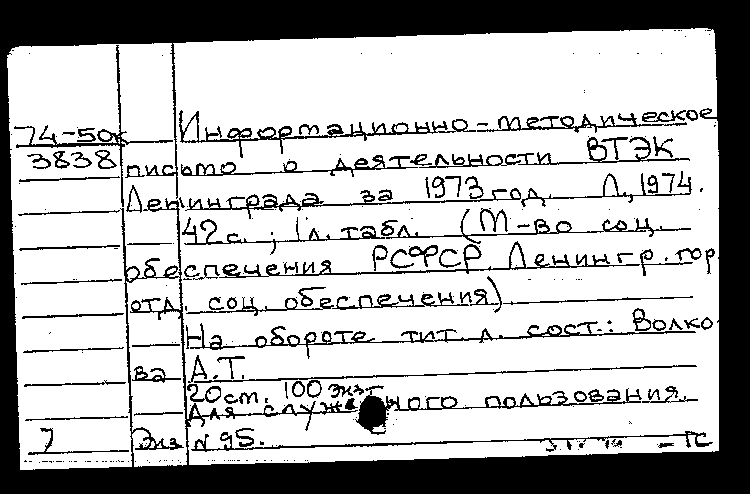 74-50к Информационно-методическое
3838 письмо о деятельности ВТЭК
Ленинграда за 1973 год. Л., 1974.
42 с.; 1 л. табл. (М-во соц.
обеспечения РСФСР. Ленингр. гор.
отд. соц. обеспечения)
На обороте тит. л. сост.: Волко-
ва А.Т.
20 см. 100 экз.
Для служебного пользования.
7 Экз N 95.
-ГС